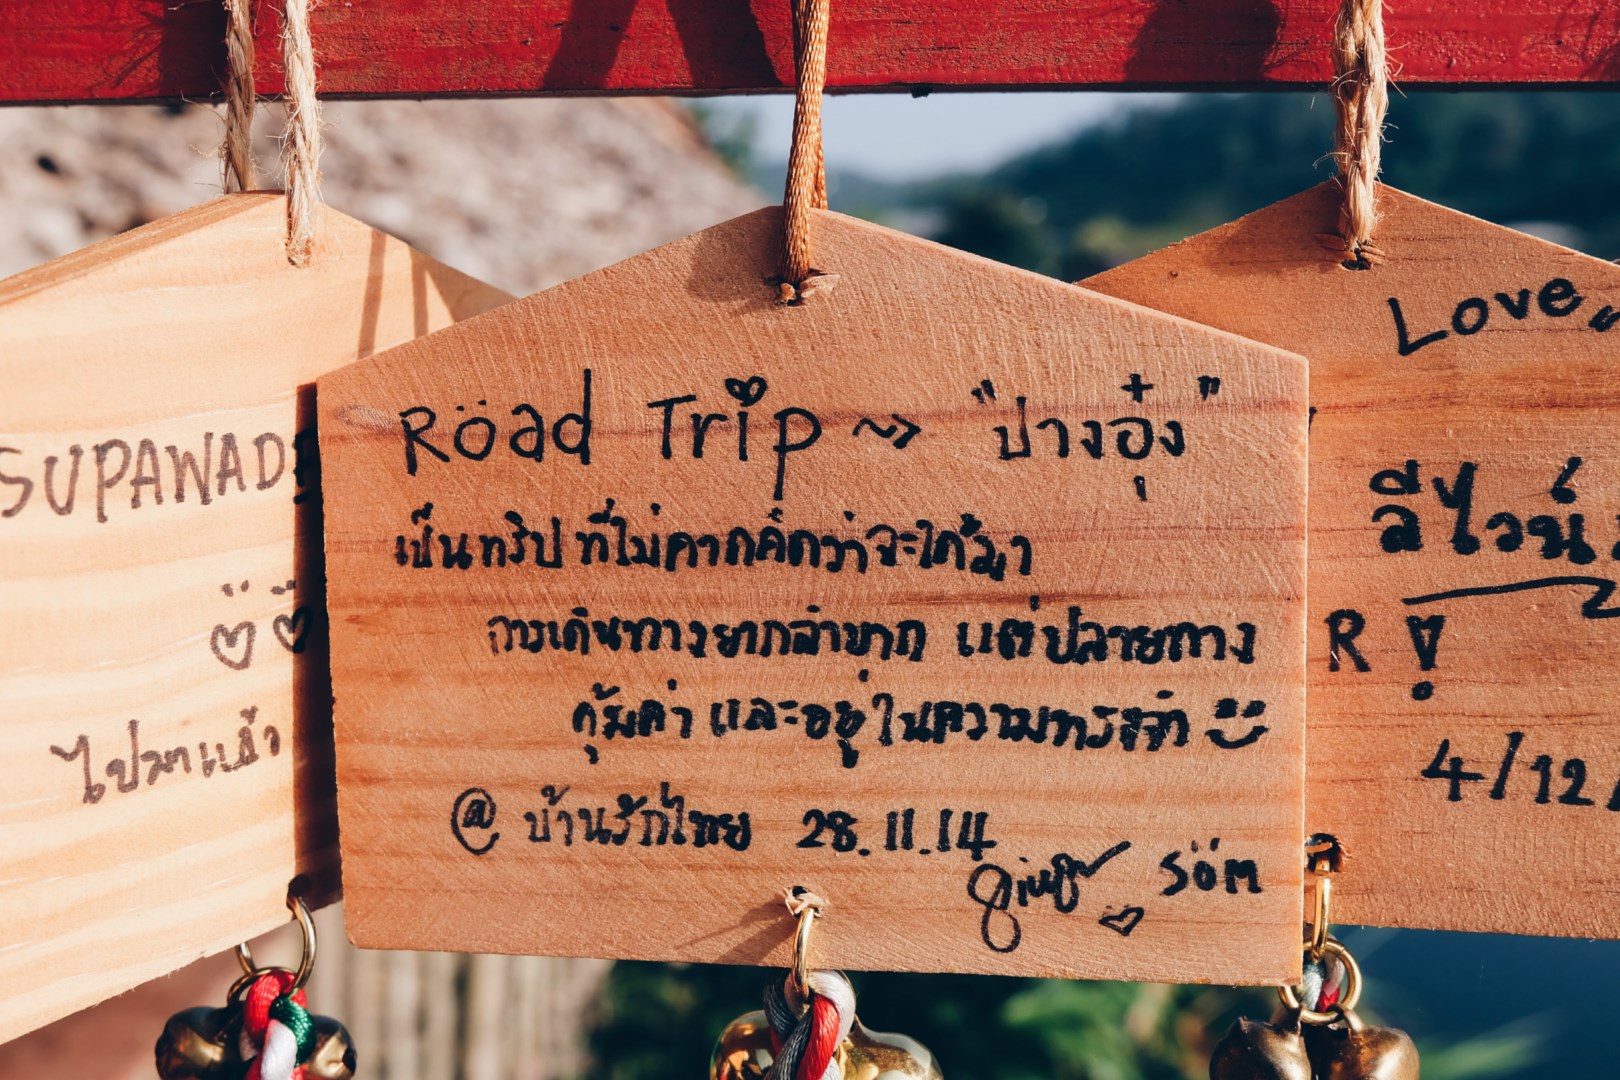 SUPAWAD
ไปมาแล้ว
Road Trip ~> "ปางอุ๋ง"
เป็นทริปที่ไม่คาดคิดว่าจะได้มา
การเดินทางยากลำบาก แต่ปลายทาง
คุ้มค่า และอยู่ในความทรงจำ
@ บ้านรักไทย 28.11.14
söm
Love
ลีไวน์
R
4/12/